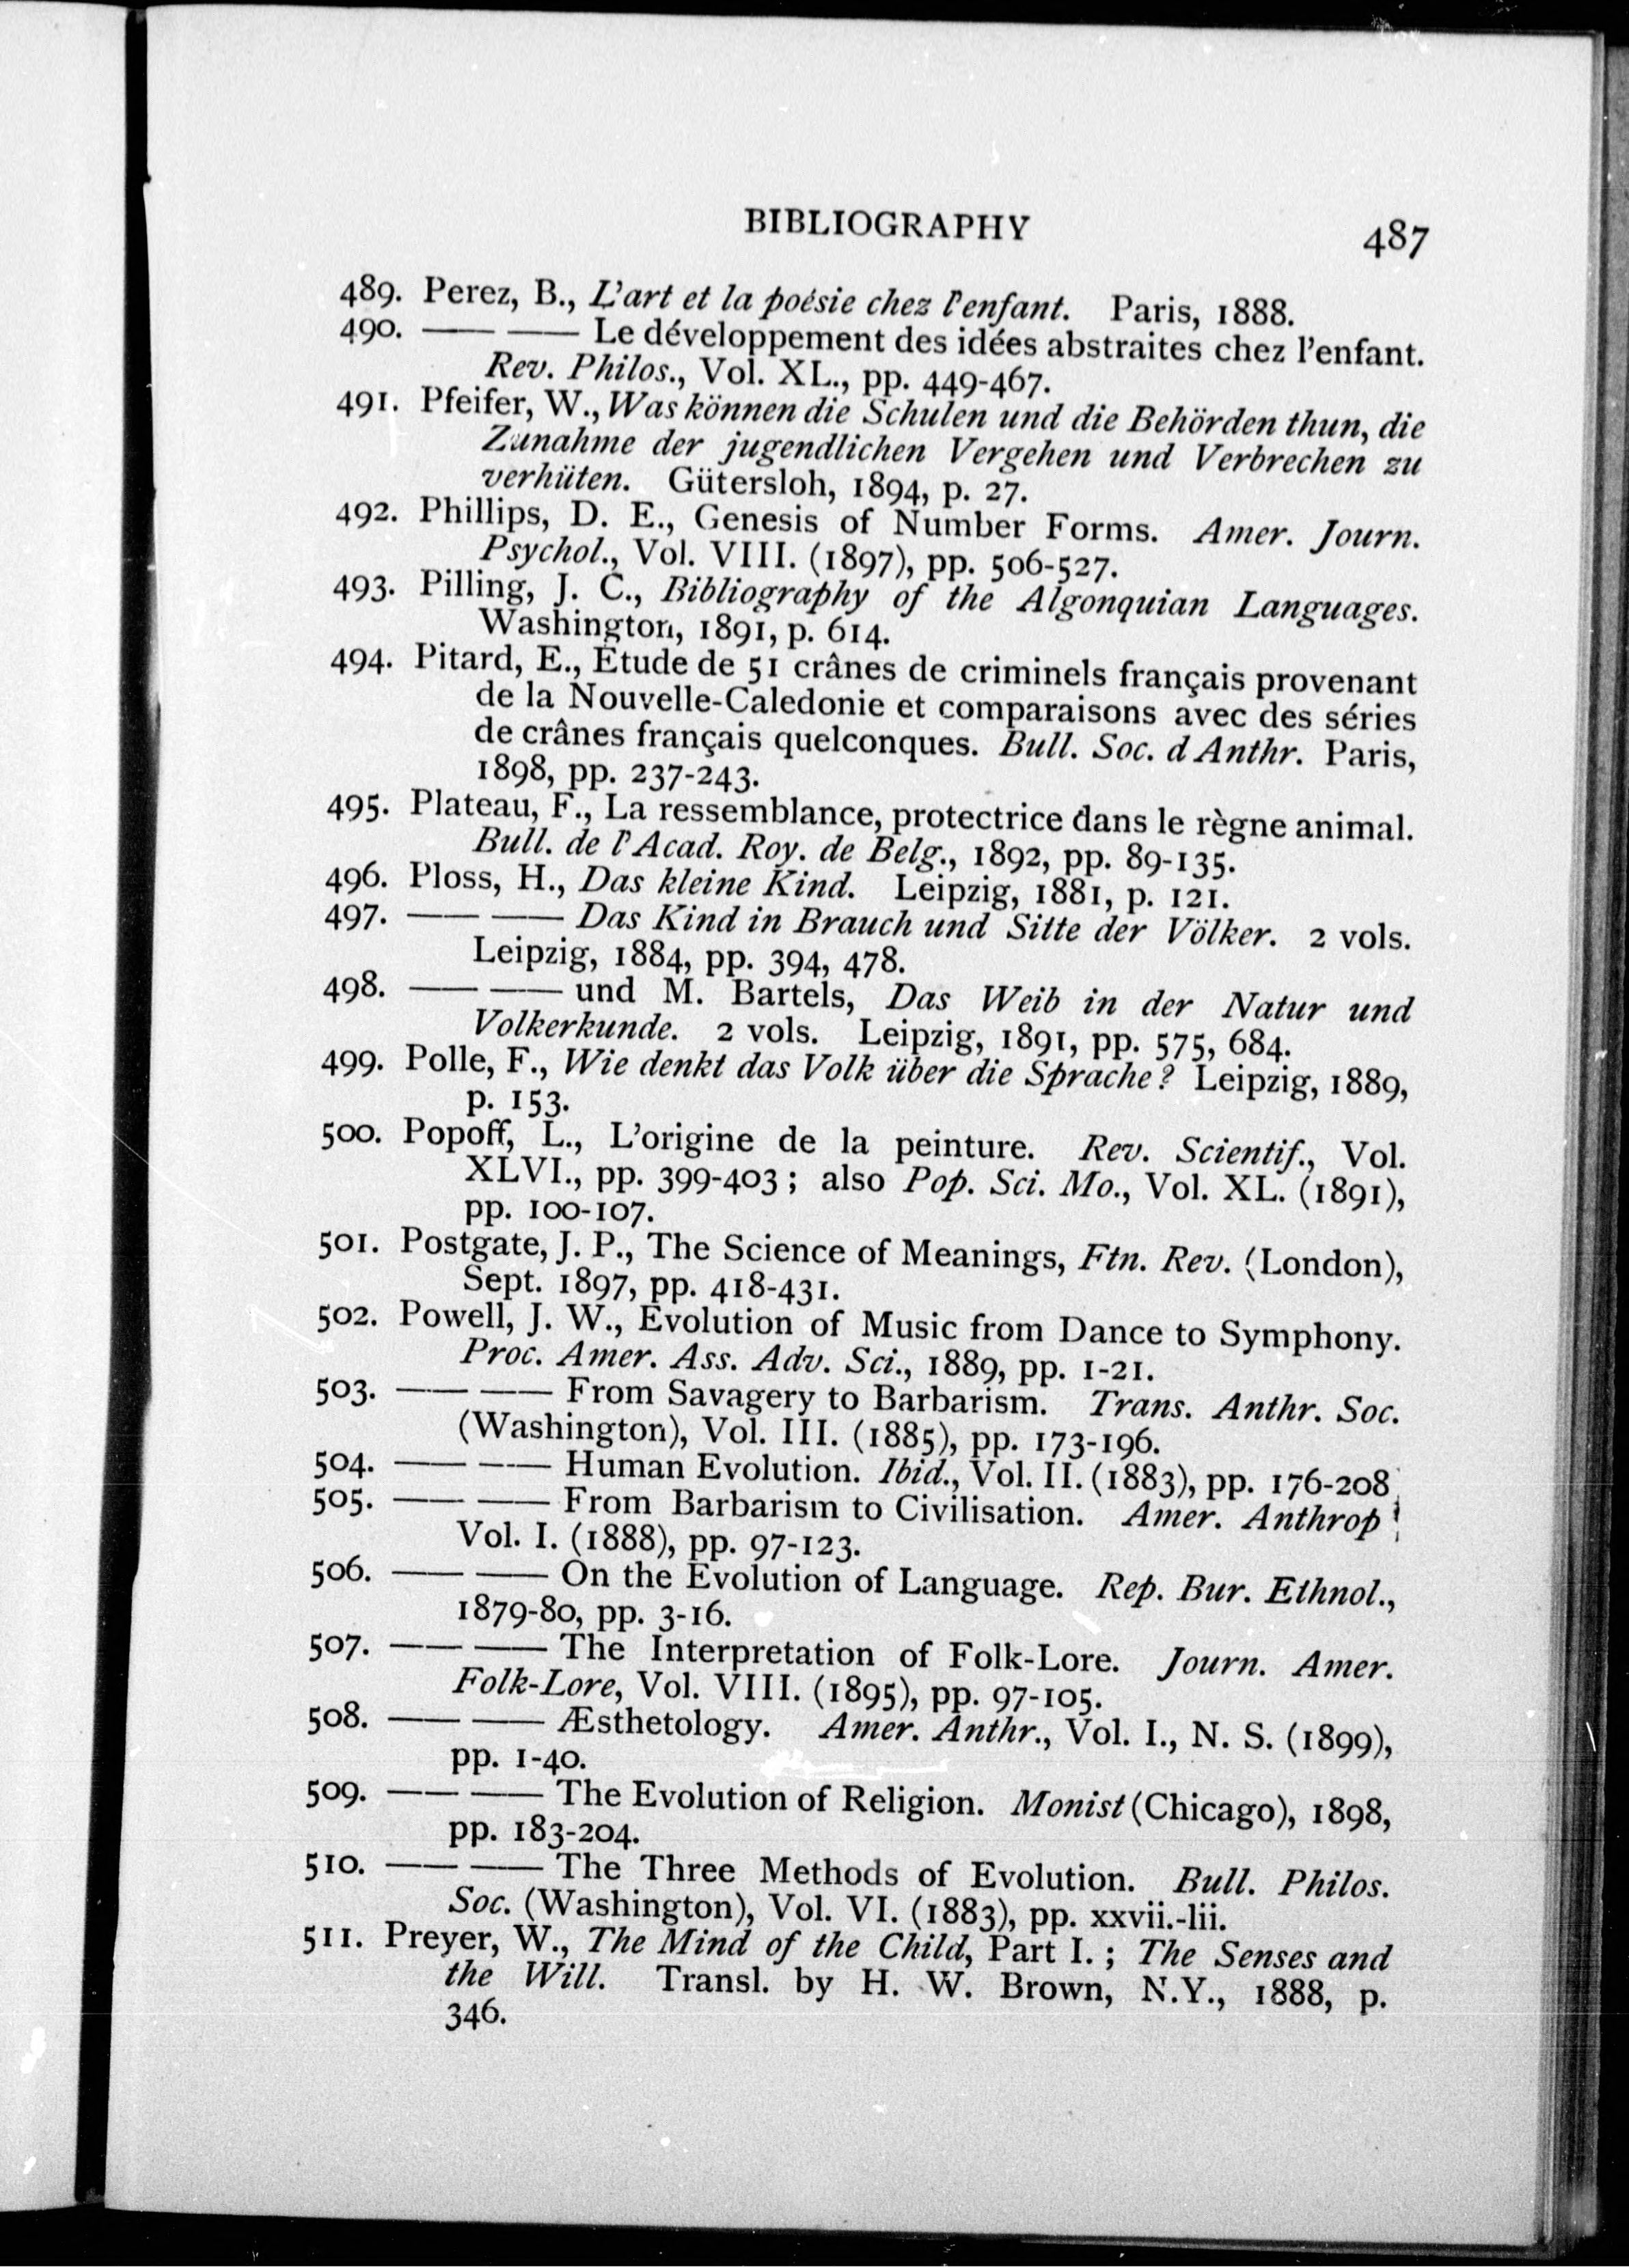 BIBLIOGRAPHY 487
489. Perez, B., L'art et la poésie chez l'enfant. Paris, 1888.
490. —— —— Le développement des idées abstraites chez l'enfant.
Rev. Philos., Vol. XL., pp. 449-467.
491. Pfeifer, W., Was können die Schulen und die Behörden thun, die
Zunahme der jugendlichen Vergehen und Verbrechen zu
verhüten. Gütersloh, 1894, p. 27.
492. Phillips, D. E., Genesis of Number Forms. Amer. Journ.
Psychol., Vol. VIII. (1897), pp. 506-527.
493. Pilling, J. C., Bibliography of the Algonquian Languages.
Washington, 1891, p. 614.
494. Pitard, E., Étude de 51 crânes de criminels français provenant
de la Nouvelle-Caledonie et comparaisons avec des séries
de crânes français quelconques. Bull. Soc. d Anthr. Paris,
1898, pp. 237-243.
495. Plateau, F., La ressemblance, protectrice dans le règne animal.
Bull. de l'Acad. Roy. de Belg., 1892, pp. 89-135.
496. Ploss, H., Das kleine Kind. Leipzig, 1881, p. 121.
497. —— —— Das Kind in Brauch und Sitte der Völker. 2 vols.
Leipzig, 1884, pp. 394, 478.
498. —— —— und M. Bartels, Das Weib in der Natur und
Volkerkunde. 2 vols. Leipzig, 1891, pp. 575, 684.
499. Polle, F., Wie denkt das Volk über die Sprache? Leipzig, 1889,
p. 153.
500. Popoff, L., L'origine de la peinture. Rev. Scientif., Vol.
XLVI., pp. 399-403; also Pop. Sci. Mo., Vol. XL. (1891),
pp. 100-107.
501. Postgate, J. P., The Science of Meanings, Ftn. Rev. (London),
Sept. 1897, pp. 418-431.
502. Powell, J. W., Evolution of Music from Dance to Symphony.
Proc. Amer. Ass. Adv. Sci., 1889, pp. 1-21.
503. —— —— From Savagery to Barbarism. Trans. Anthr. Soc.
(Washington), Vol. III. (1885), pp. 173-196.
504. —— —— Human Evolution. Ibid., Vol. II. (1883), pp. 176-208
505. —— —— From Barbarism to Civilisation. Amer. Anthrop
Vol. I. (1888), pp. 97-123.
506. —— —— On the Evolution of Language. Rep. Bur. Ethnol.,
1879-80, pp. 3-16.
507. —— —— The Interpretation of Folk-Lore. Journ. Amer.
Folk-Lore, Vol. VIII. (1895), pp. 97-105.
508. —— —— Æsthetology. Amer. Anthr., Vol. I., N. S. (1899),
pp. 1-40.
509. —— —— The Evolution of Religion. Monist (Chicago), 1898,
pp. 183-204.
510. —— —— The Three Methods of Evolution. Bull. Philos.
Soc. (Washington), Vol. VI. (1883), pp. xxvii.-lii.
511. Preyer, W., The Mind of the Child, Part I.; The Senses and
the Will. Transl. by H. W. Brown, N.Y., 1888, p.
346.